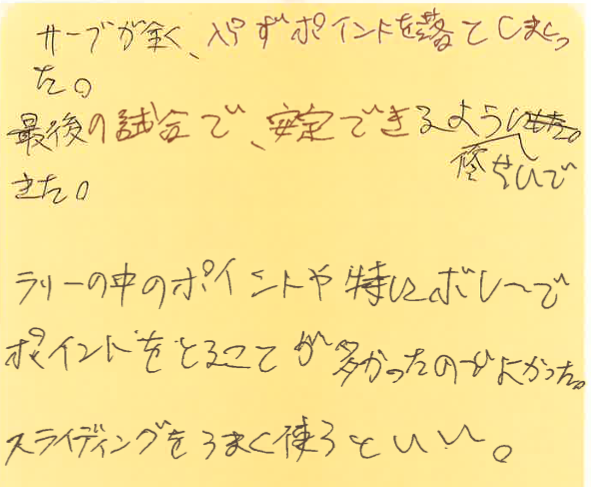 サーブが全く、入らずポイントを落としてしまっ
た。
最後の試合で、安定できるように
修せいで
きた。
ラリーの中のポイントや特にボレーで
ポイントをとることが多かったのがよかった。
スライディングをうまく使うといい。